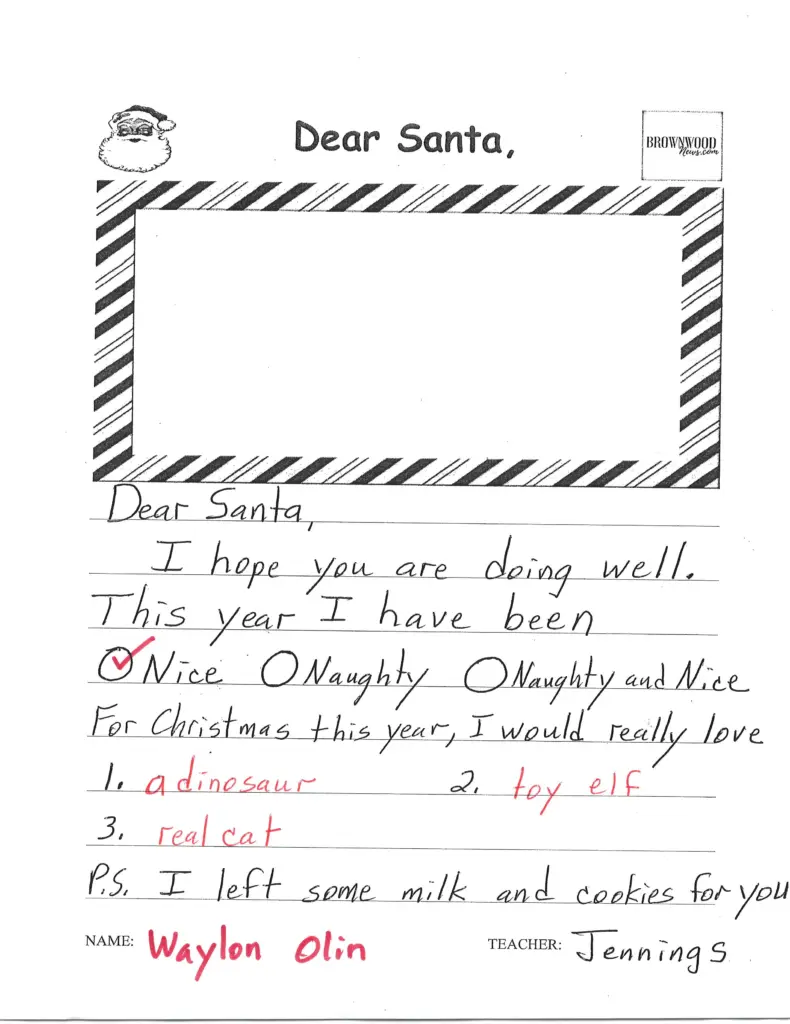 Dear Santa,
BROWNWOOD
News.com
Dear Santa,
I hope you are doing well.
This year I have been
Nice Naughty Naughty and Nice
For Christmas this year, I would really love
1. a dinosaur 2. toy elf
3. real cat
P.S. I left some milk and cookies for you
NAME: Waylon Olin TEACHER: Jennings